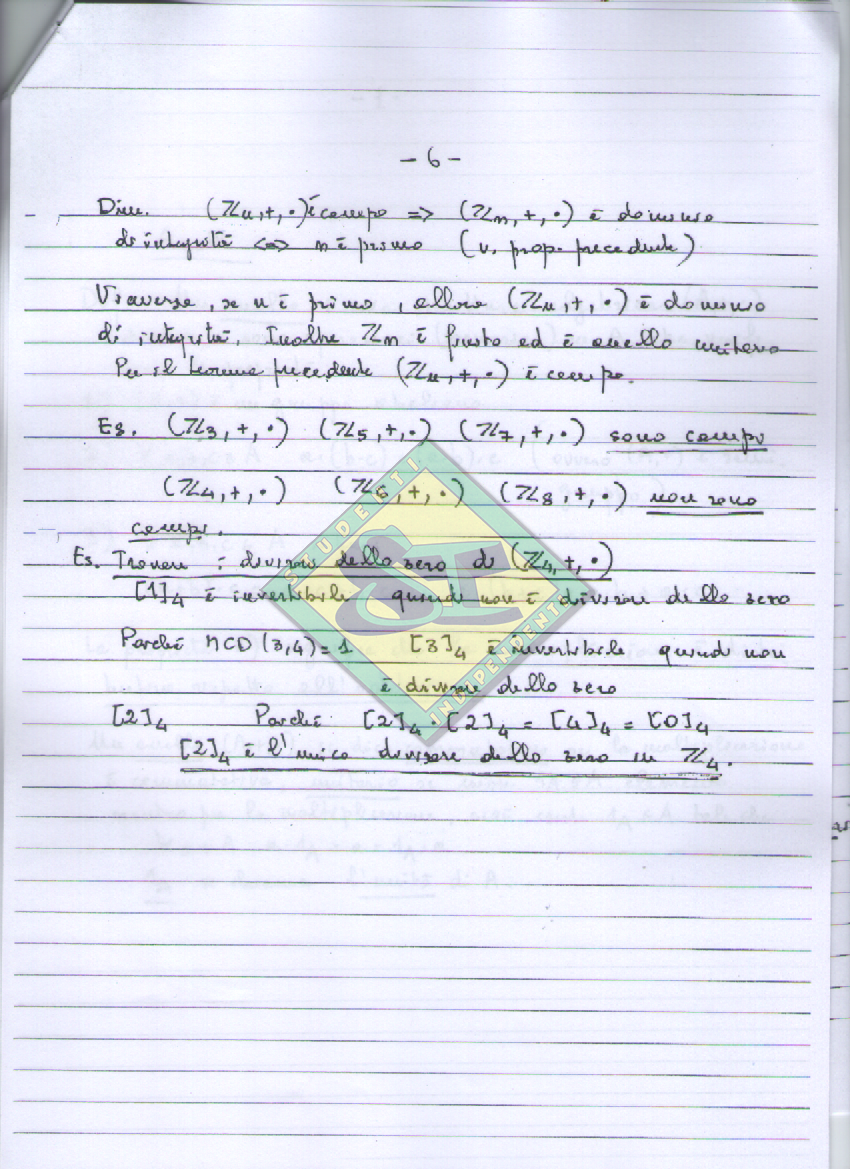 - 6 -
Dim. (ℤn, +, ·) è campo => (ℤn, +, ·) è dominio
di integrità <=> n è primo (v. prop. precedente)
Viceversa, se n è primo, allora (ℤn, +, ·) è dominio
di integrità. Inoltre ℤn è finito ed è anello unitario
Per il teorema precedente (ℤn, +, ·) è campo.
Es. (ℤ3, +, ·) (ℤ5, +, ·) (ℤ7, +, ·) sono campi
(ℤ4, +, ·) (ℤ6, +, ·) (ℤ8, +, ·) non sono
campi.
Es. Trovare i divisori dello zero di (ℤ4, +, ·)
[1]4 è invertibile quindi non è divisore dello zero
Poiché MCD (3,4) = 1 [3]4 è invertibile quindi non
è divisore dello zero
[2]4 Poiché [2]4 · [2]4 = [4]4 = [0]4
[2]4 è l'unico divisore dello zero in ℤ4.
STUDENTI
INDIPENDENTI